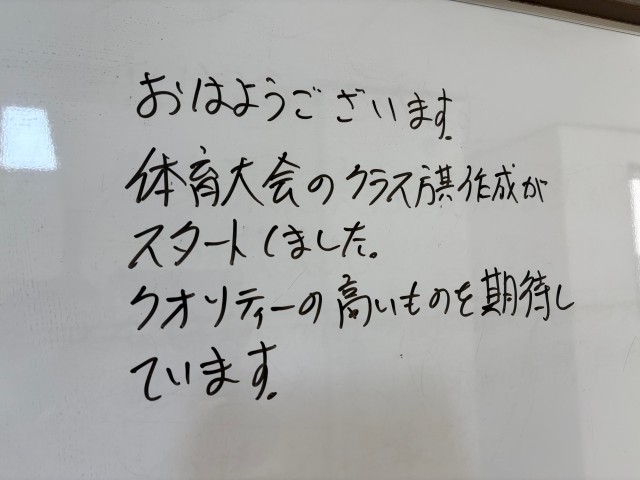 おはようございます。
体育大会のクラス旗作成が
スタートしました。
クオリティーの高いものを期待し
ています。